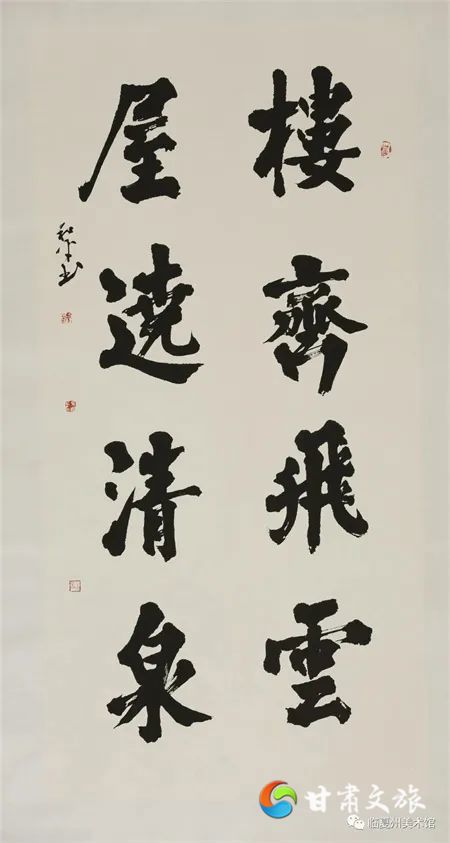 樓齊飛雲
屋遶清泉
和平书
甘肃文旅
临夏州美术馆